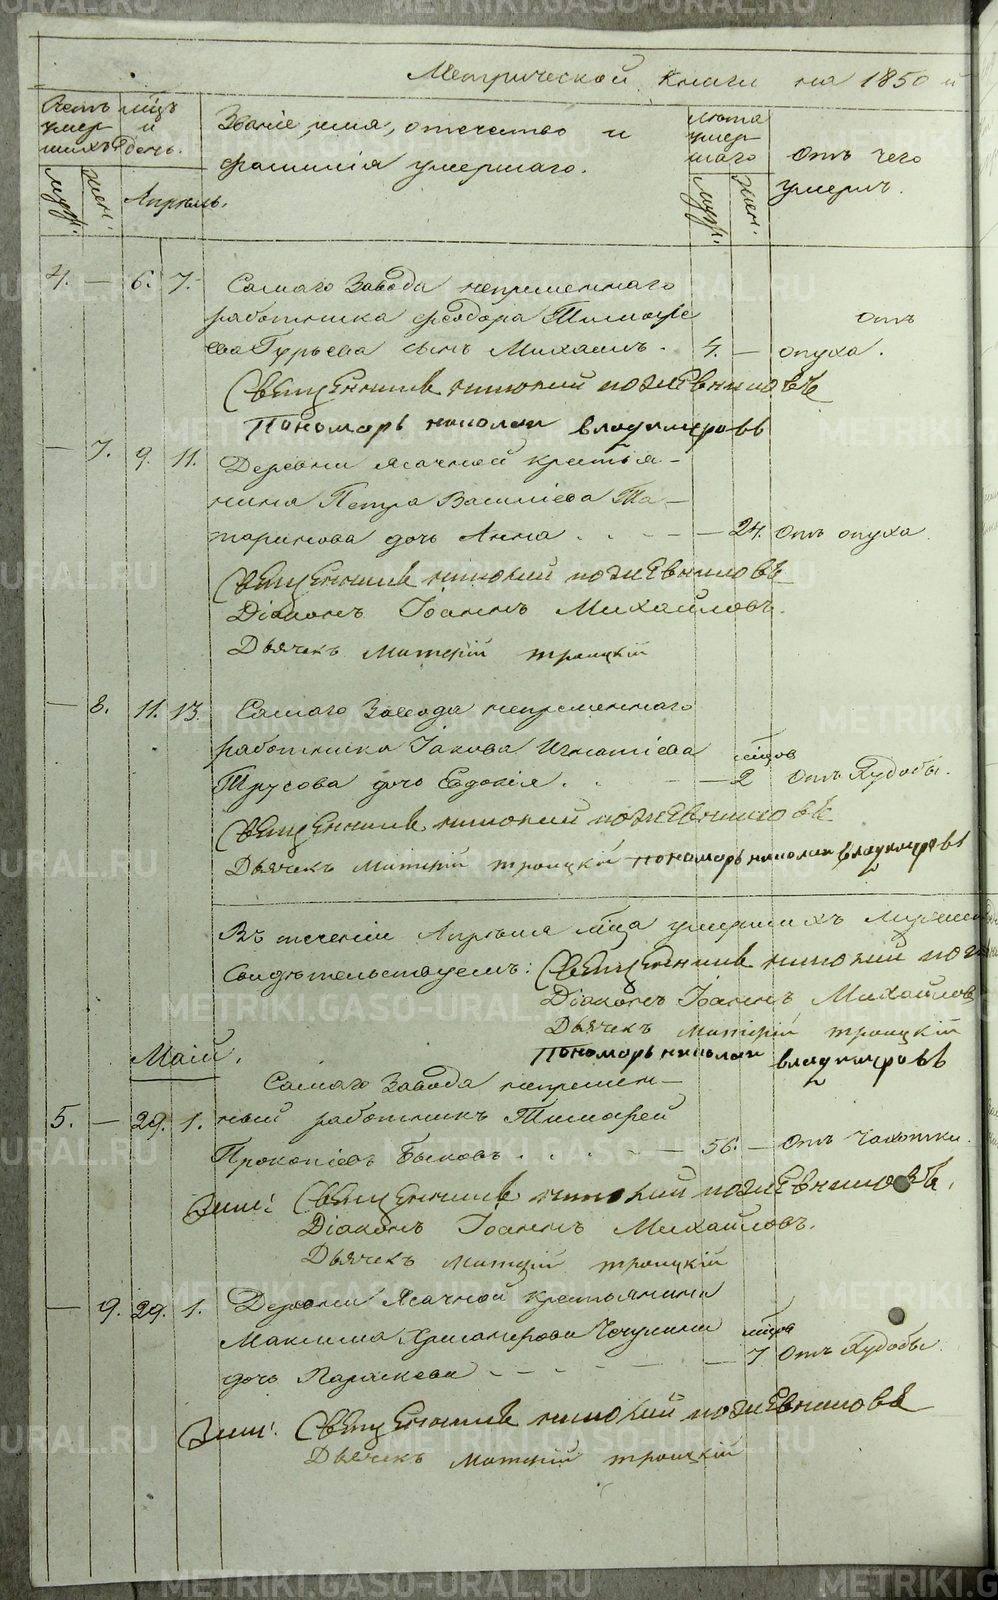 Метрической книги на 1850 й
Счетъ умершихъ
мѣць и день.
Званіе, имя, отечество и фамилія умершаго.
лѣта умершаго
Отъ чего умеръ.
муж. жен.
Апрѣль.
муж. жен.
4. — 6. 7. Самаго Завода непременнаго
работника Феодора Тимофе
ева Гурьева сынъ Михаилъ. 4. — Отъ опуха.
Священникъ Николай
Пономарь Николай Владимировъ
— 7. 9. 11. Деревни Ясачной крестья-
нина Петра Василіева Та-
таринова дочь Анна . . . — 24. Отъ опуха
Священникъ Николай
Діаконъ Іоаннъ Михайловъ.
Дьячекъ Матфій Троицкій
— 8. 11. 13. Самаго Завода непременнаго
работника Іакова Игнатіева
Трусова дочь Евдокія. . — — 2 мѣцов Отъ Худобы.
Священникъ Николай
Дьячекъ Матфій Троицкій Пономарь Николай Владимировъ
Въ теченіи Апрѣля мѣца умершихъ
Свидѣтельствуемъ: Священникъ Николай
Діаконъ Іоаннъ Михайлов
Дьячекъ Матфій Троицкій
Пономарь Николай Владимировъ
Маій.
Самаго Завода непремен-
5. — 29. 1. ный работникъ Тимофей
Прокопіевъ Быковъ . . . — 56. — Отъ Чахотки.
Священникъ Николай
Діаконъ Іоаннъ Михайловъ.
Дьячекъ Матфій Троицкій
— 9. 29. 1. Деревни Ясачной крестьянина
Максима Чечулина мѣцов
дочь Параскева — — — 7 Отъ Худобы.
Священникъ Николай
Дьячекъ Матфій Троицкій
METRIKI.GASO-URAL.RU